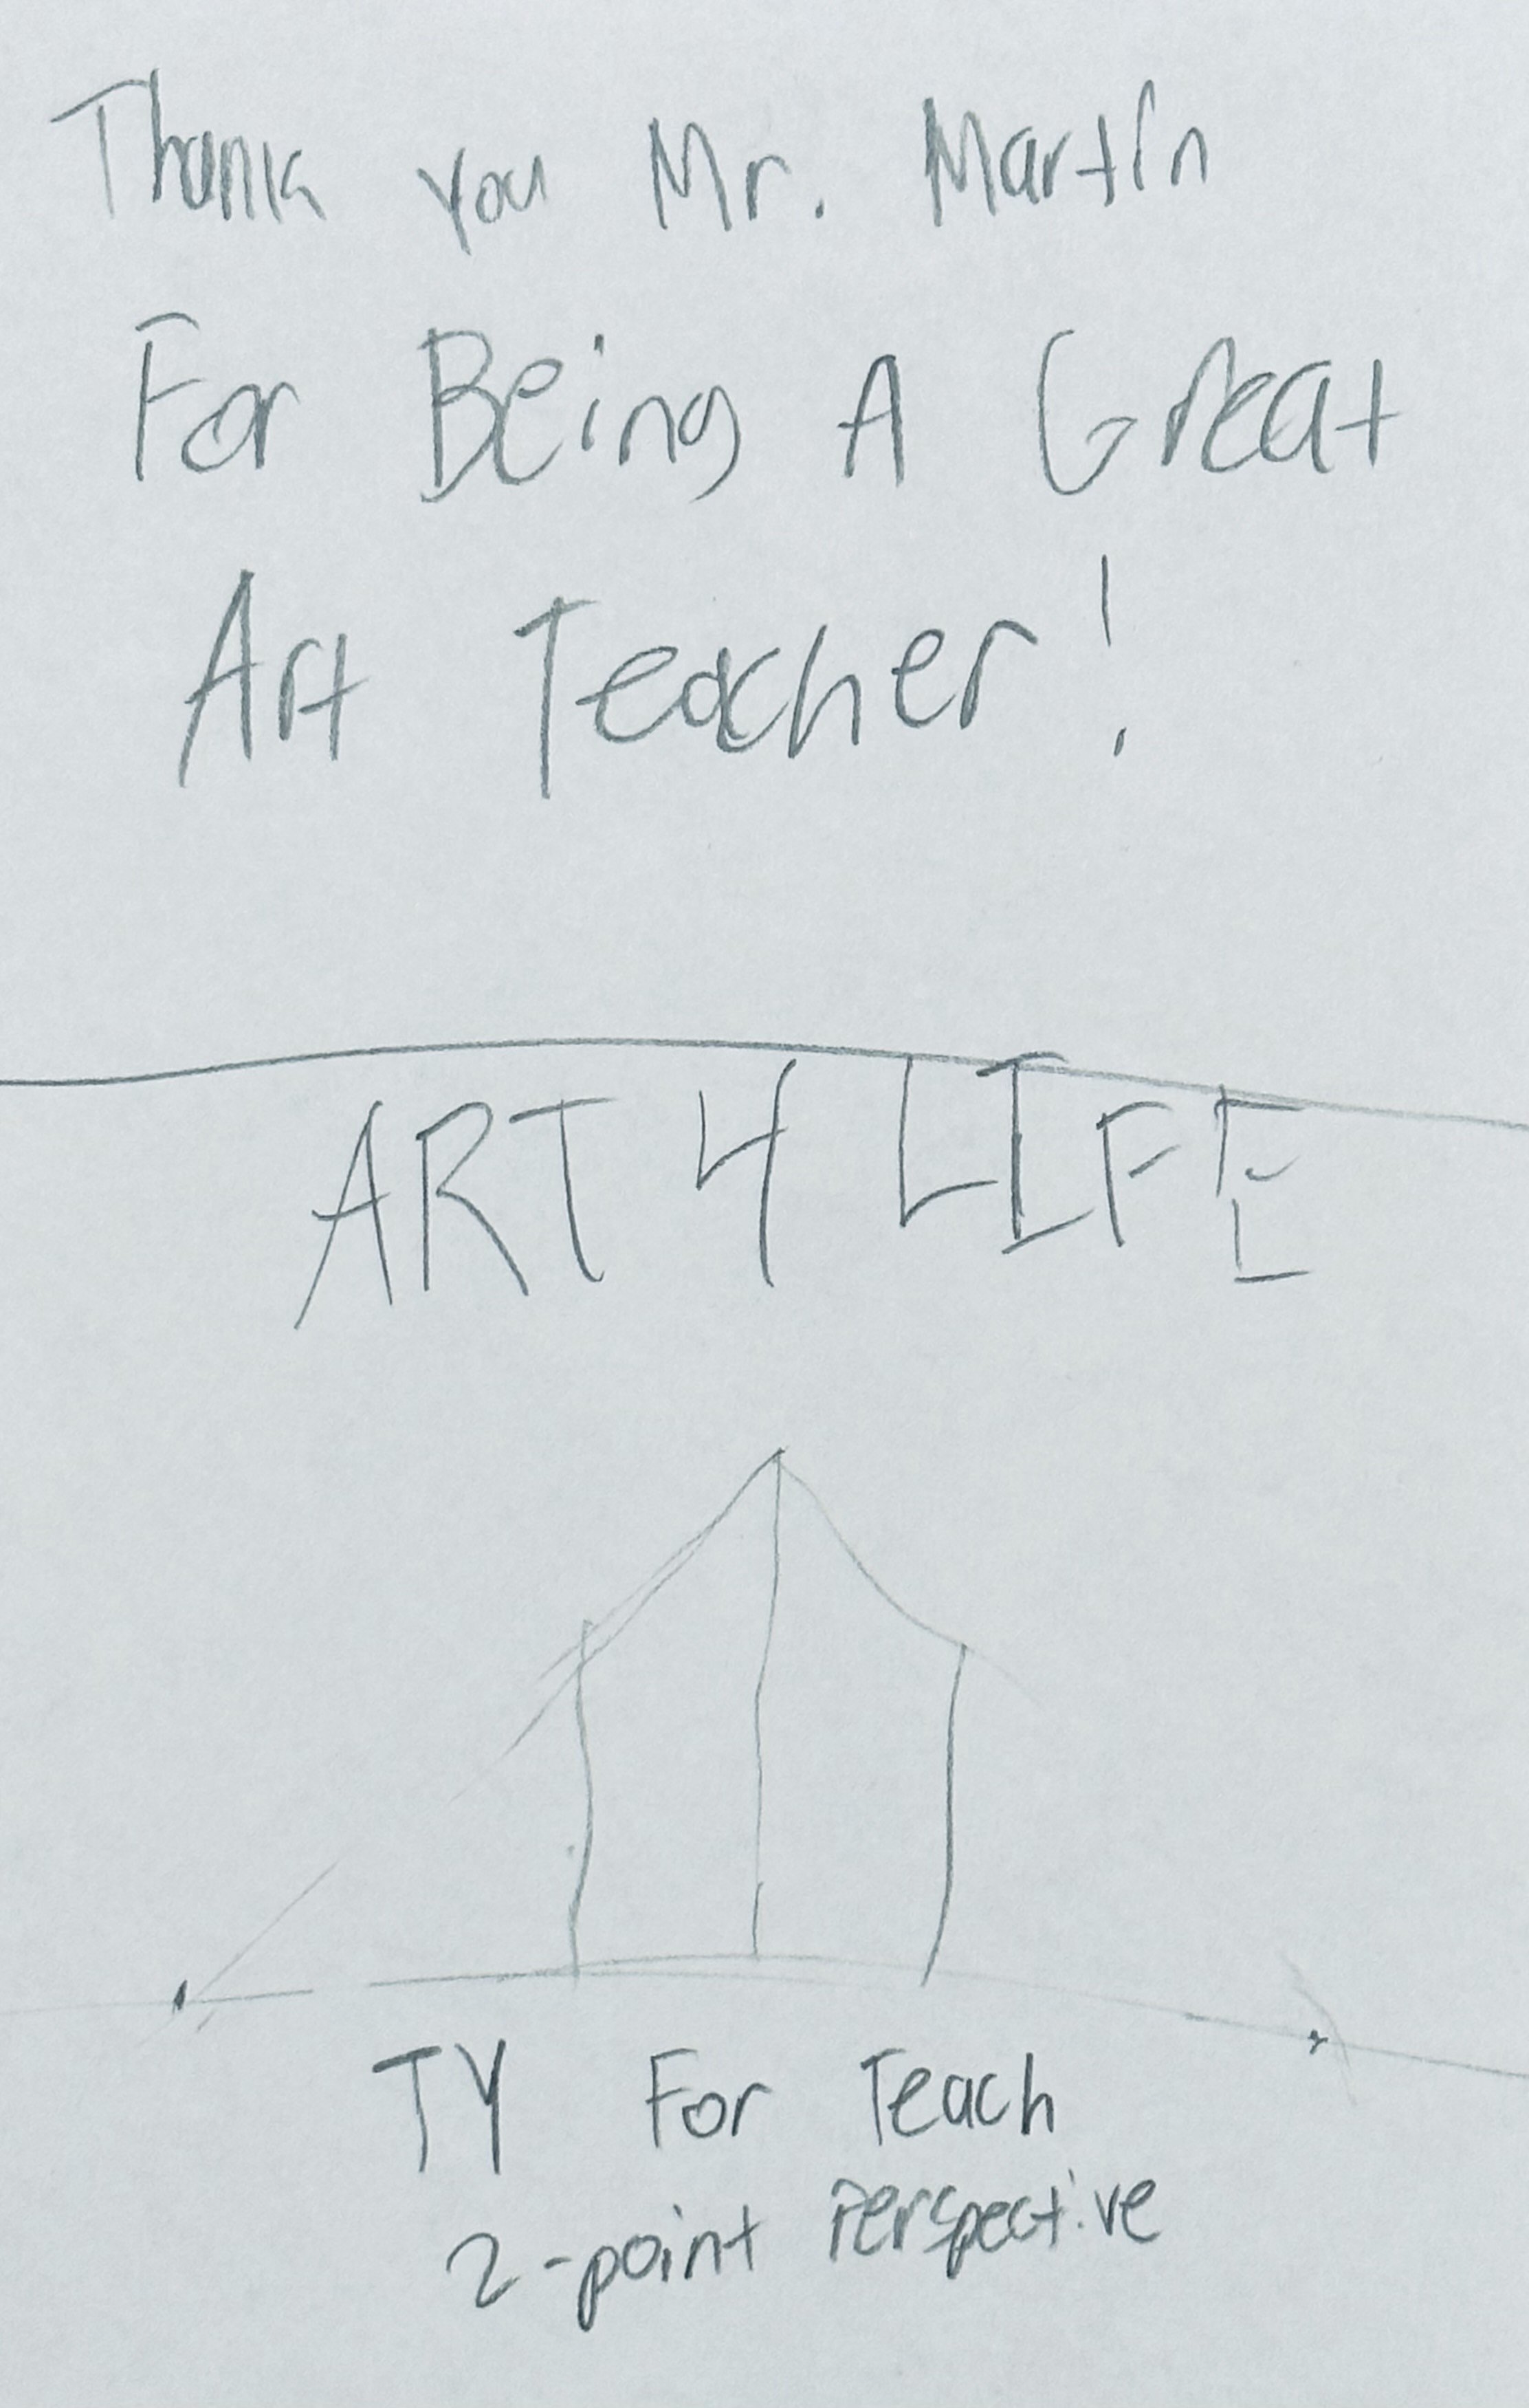 Thank you Mr. Martin
For Being A Great
Art Teacher!
ART 4 LIFE
TY For Teach
2-point Perspective